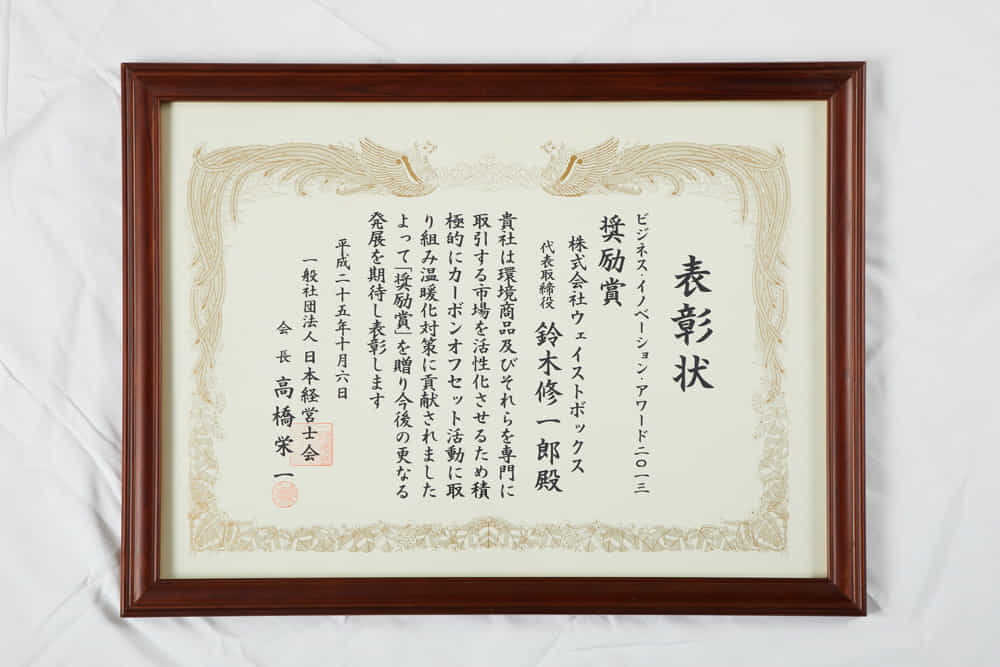 表彰状
ビジネス・イノベーション・アワード二〇一三
奨励賞
株式会社ウェイストボックス
代表取締役 鈴木修一郎殿
貴社は環境商品及びそれらを専門に
取引する市場を活性化させるため積
極的にカーボンオフセット活動に取
り組み温暖化対策に貢献されました
よって「奨励賞」を贈り今後の更なる
発展を期待し表彰します
平成二十五年十月六日
一般社団法人 日本経営士会
会長 高橋栄一